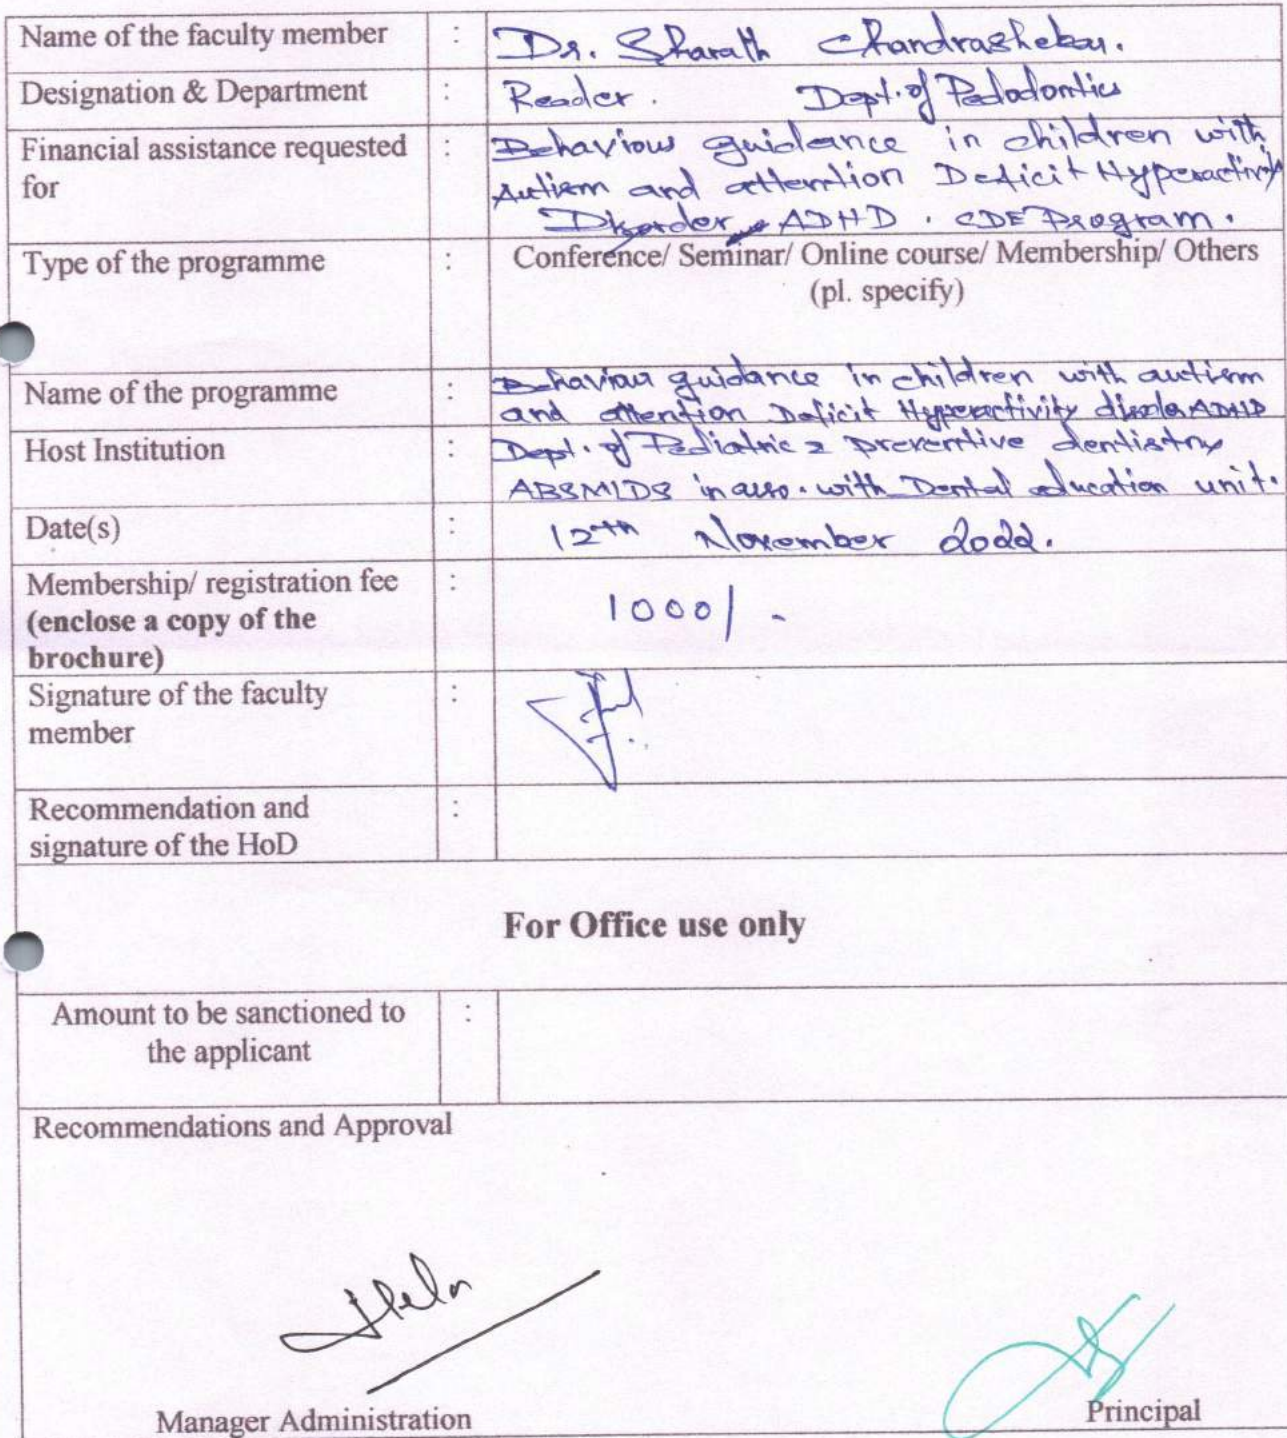 Name of the faculty member : Dr. Sharath Chandrashekar.
Designation & Department : Reader. Dept. of Pedodontics
Financial assistance requested : Behaviour guidance in children with
for Autism and attention Deficit Hyperactivity
Disorder ADHD. CDE Program.
Type of the programme : Conference/ Seminar/ Online course/ Membership/ Others
(pl. specify)
Name of the programme : Behaviour guidance in children with autism
and attention Deficit Hyperactivity ADHD
Host Institution : Dept. of Pediatric & preventive dentistry
ABSMIDS in asso. with Dental education unit.
Date(s) : 12th November 2022.
Membership/ registration fee :
(enclose a copy of the 1000/-
brochure)
Signature of the faculty :
member
Recommendation and :
signature of the HoD
For Office use only
Amount to be sanctioned to :
the applicant
Recommendations and Approval
Manager Administration Principal